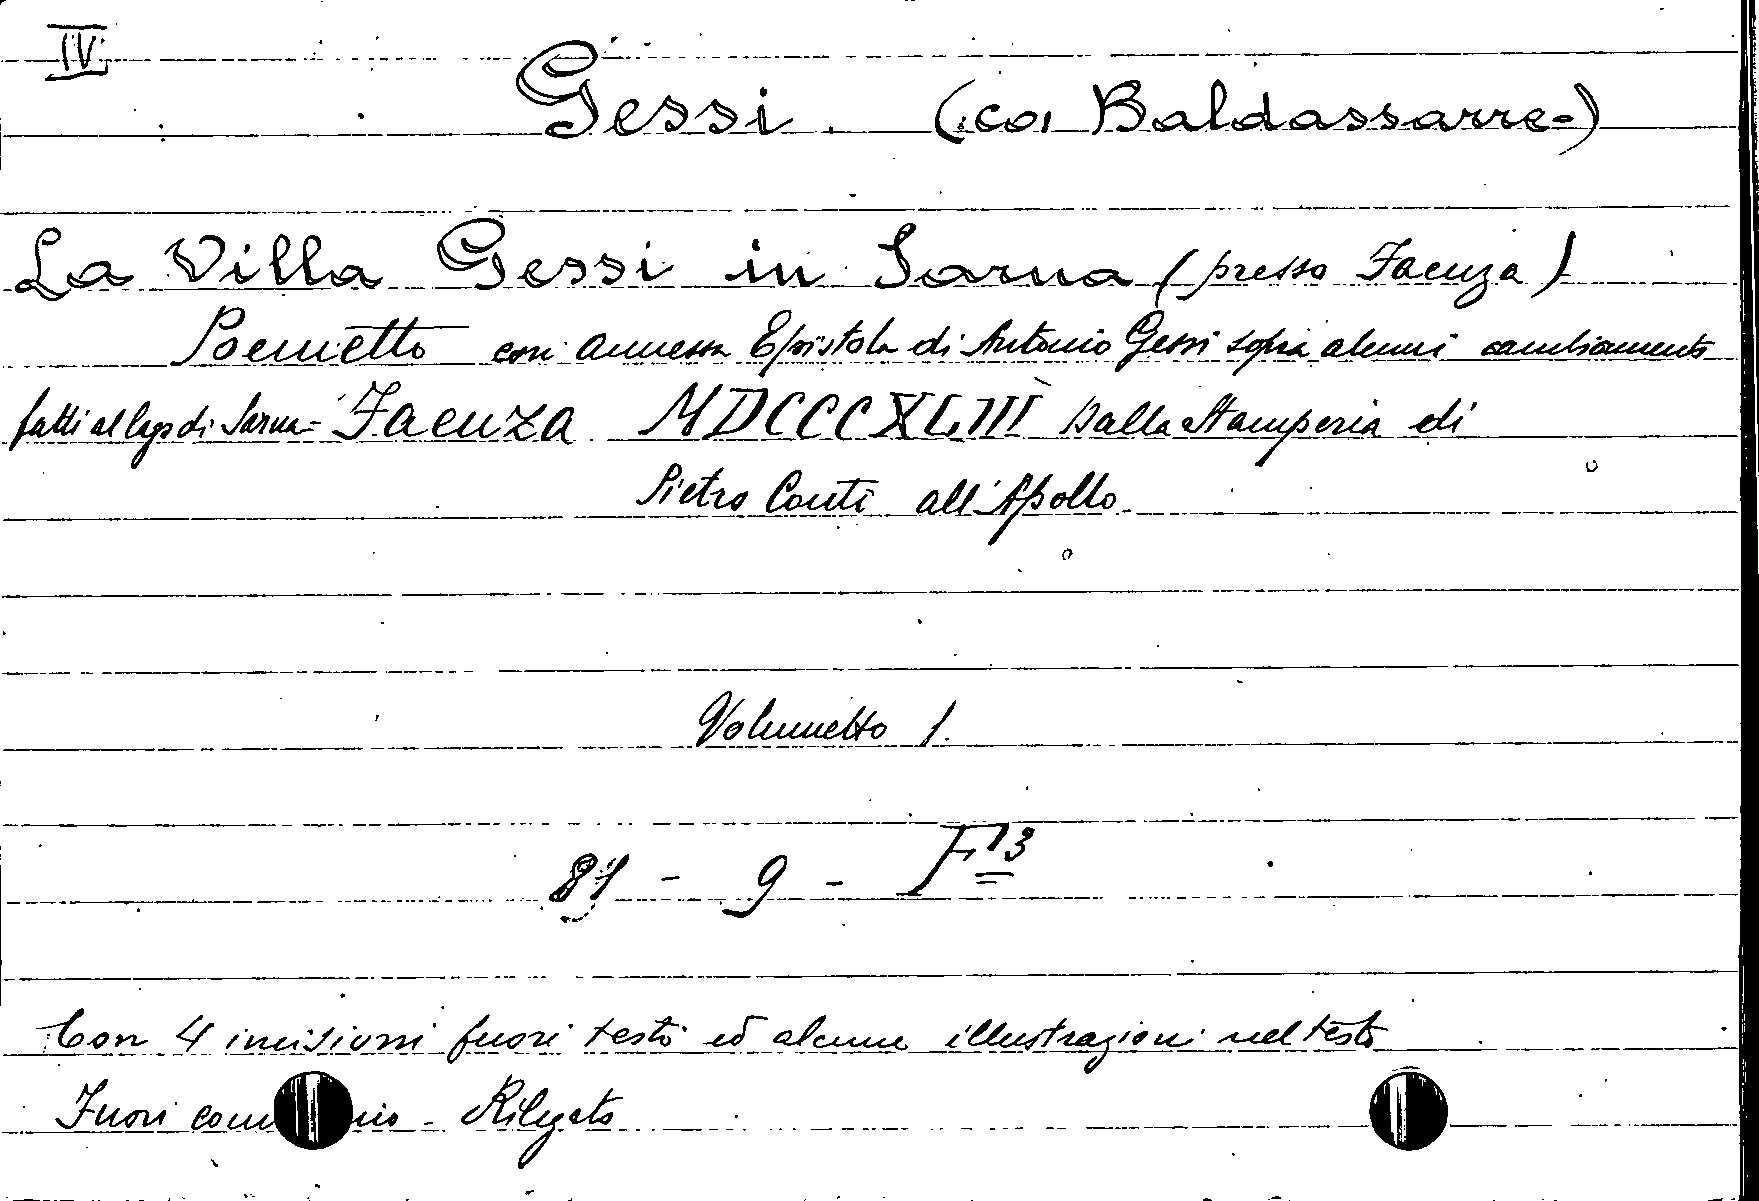 IV
Gessi. (co, Baldassarre-)
La Villa Gessi in Sarna (presso Faenza)
Poemetto con annessa Epistola di Antonio Gessi sopra alcuni cambiamenti
fatti al lago di Sarna = Faenza MDCCCXLIII Dalla Stamperia di
Pietro Conti all'Apollo.
Volumetto 1.
81 - 9 - F 13
Con 4 incisioni fuori testo ed alcune illustrazioni nel testo
Fuori - Rilegato